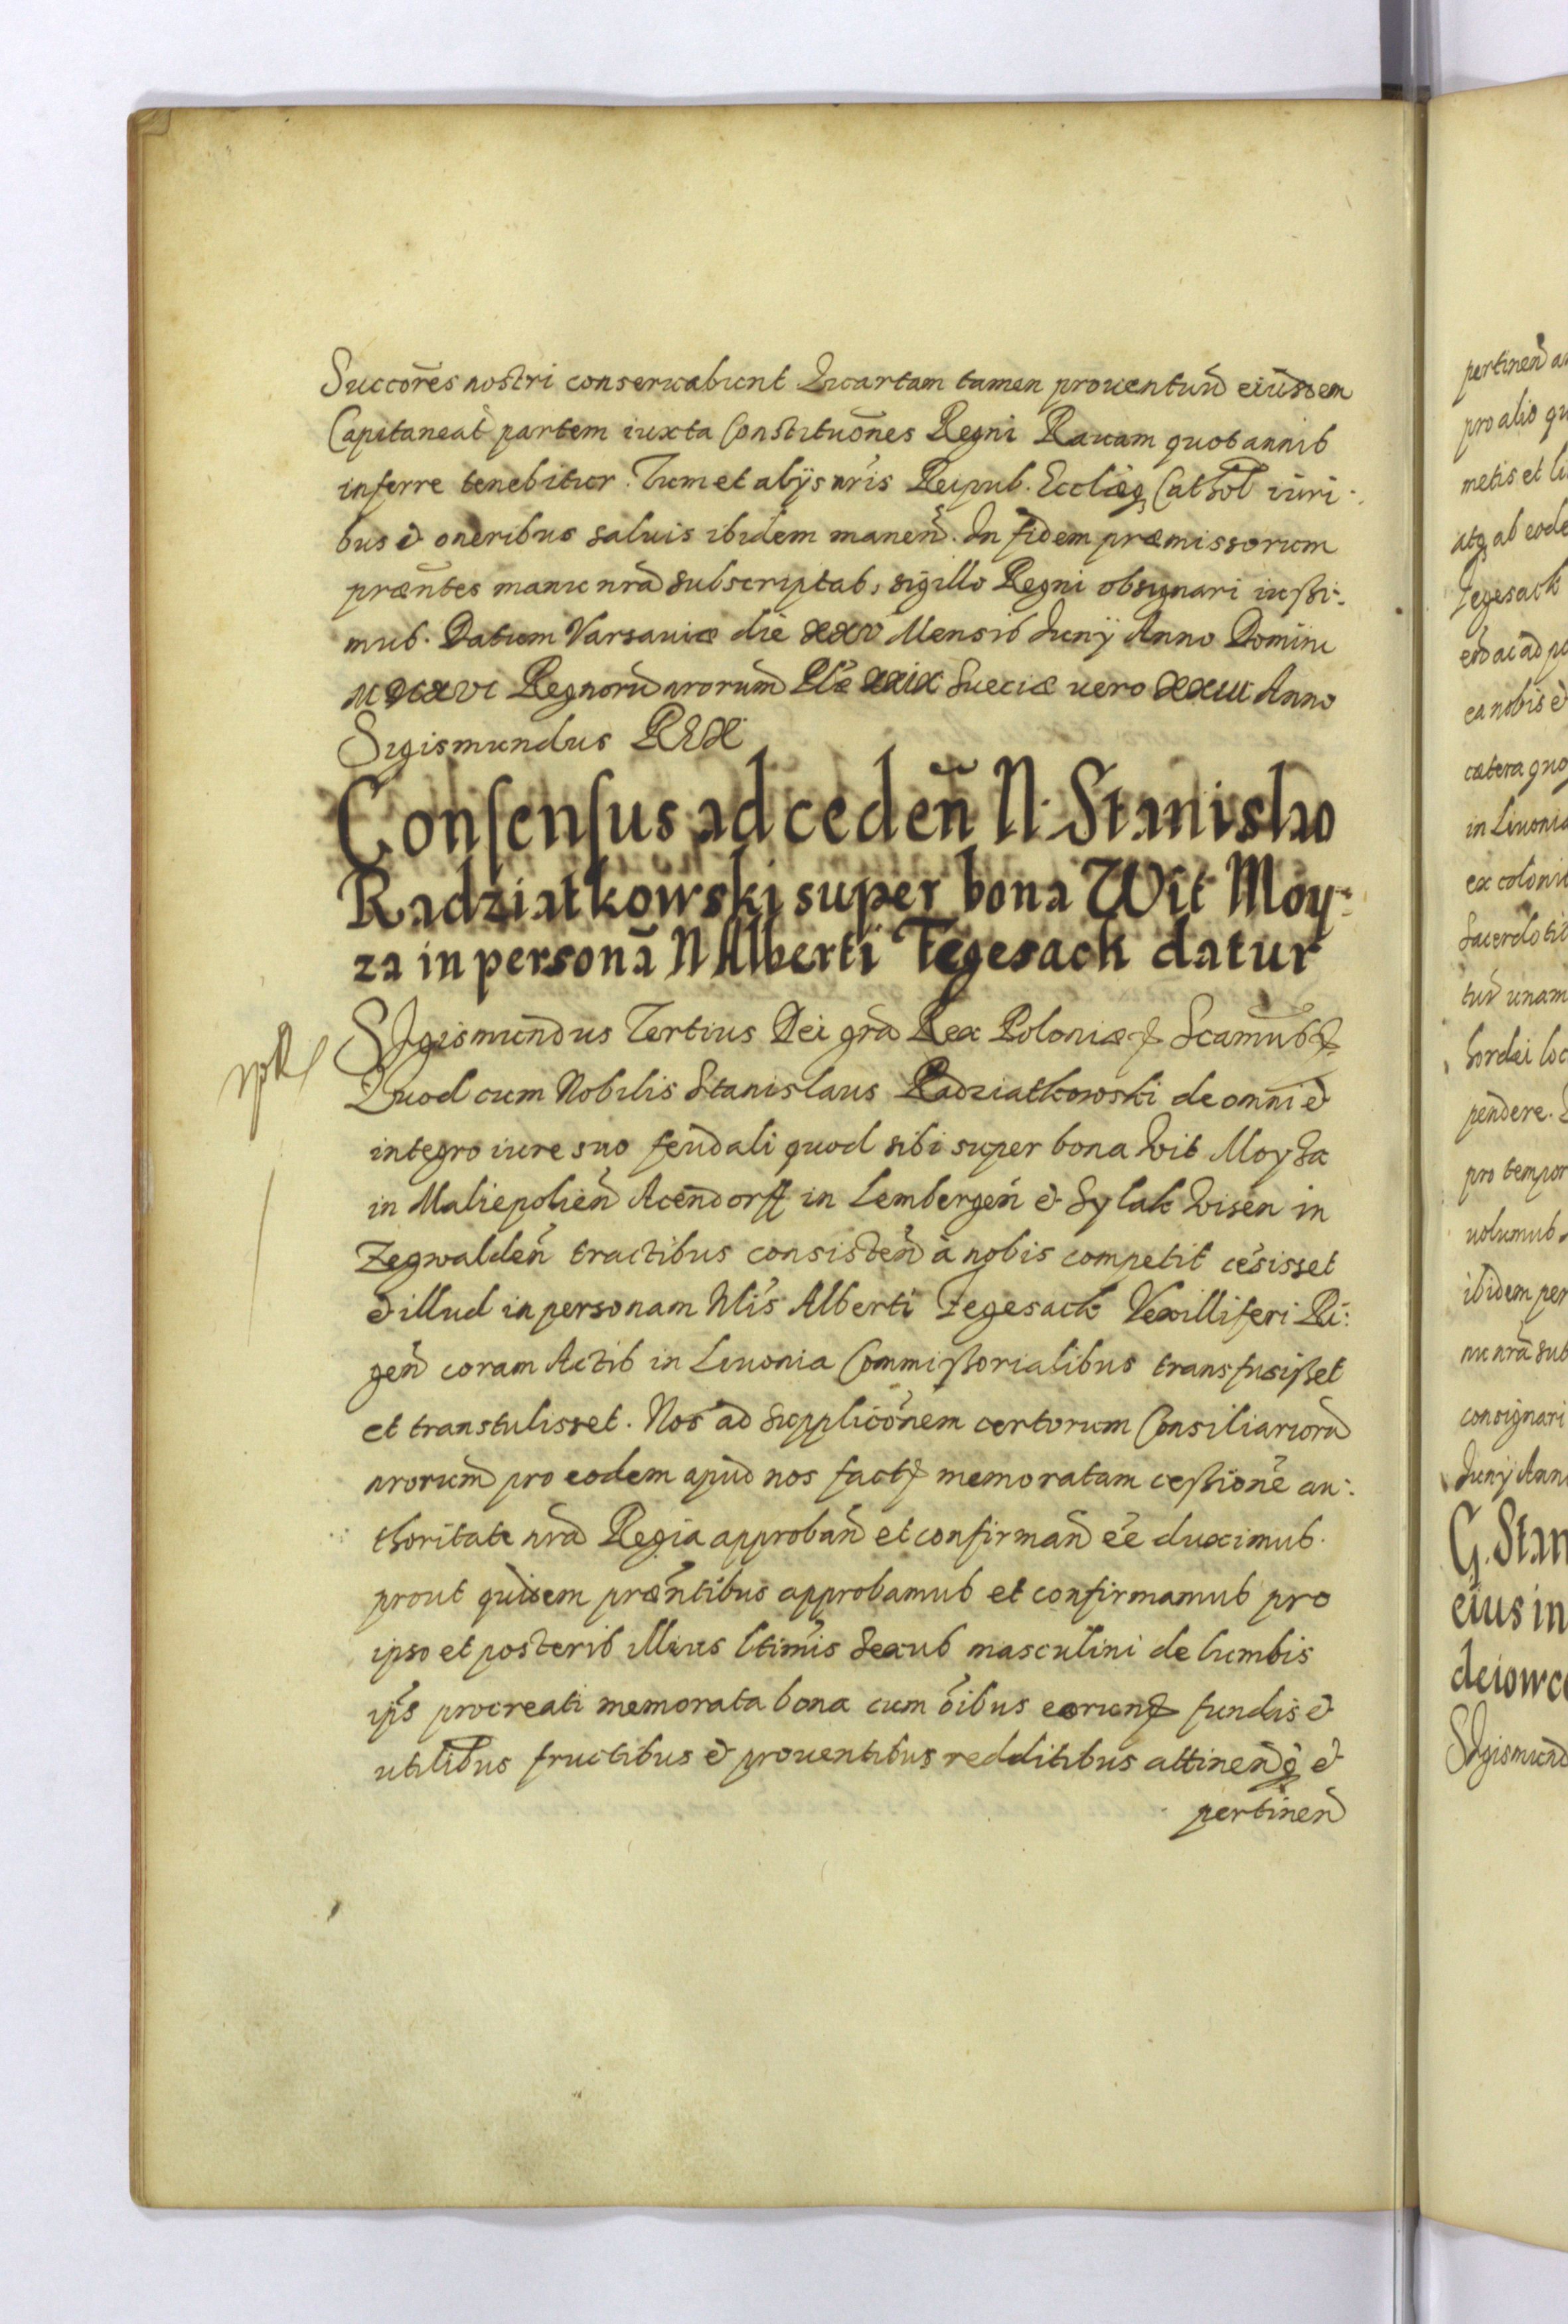 Succores nostri conseruabunt Quartam tamen prouentuu eiusdem
Capitaneat partem iuxta Constituones Regni Rauam quotannis
inferre tenebitur. Tum et alijs nris Reipub. Eccliæq Cathol iuri:
bus et oneribus saluis ibidem manen. In fidem præmissorum
præntes manu nra subscriptas, sigillo Regni obsignari iussi:
mus. Datum Varsauiæ die XXV Mensis Junij Anno Domini
MDCXVI Regnoru nrorum Plæ XXIX Sueciæ uero XXIII Anno
Sigismundus REX
Consensus ad ceden N. Stanislao
Radziatkowski super bona Wit Moy:
za in persona N Alberti Tegesack datur
SIgismundus Tertius Dei gra Rex Poloniæ
Quod cum Nobilis Stanislaus Radziatkowski de omni et
integro iure suo feudali quod sibi super bona Wit Moyza
in Maliepolien Acendorff in Lembergen et Sylak Wisen in
Zegwalden tractibus consisten a nobis competit cesisset
et illud in personam Nlis Alberti Tegesack Vexilliferi Ri:
gen coram Actis in Liuonia Commissorialibus transfusisset
et transtulisset. Nos ad suppliconem certorum Consiliarioru
nrorum pro eodem apud nos fact memoratam cessione au:
thoritate nra Regia approban et confirman ee duximus.
prout quidem præntibus approbamus et confirmamus pro
ipso et posteris illius ltimis sexus masculini de lumbis
ips procreati memorata bona cum oibus eorund fundis et
utilibus fructibus et prouentibus redditibus attinen q et
pertinen
pertinen
pro alio
metis et
atq ab eode
Tegesack
ea nobis et
cætera
in Liuonia
ex
tur unam
hordei loc
pendere.
pro tempor
uolumus
ibidem per
nu nra sub
consignari
Junij Ann
G. Stan
eius in
SIgismund